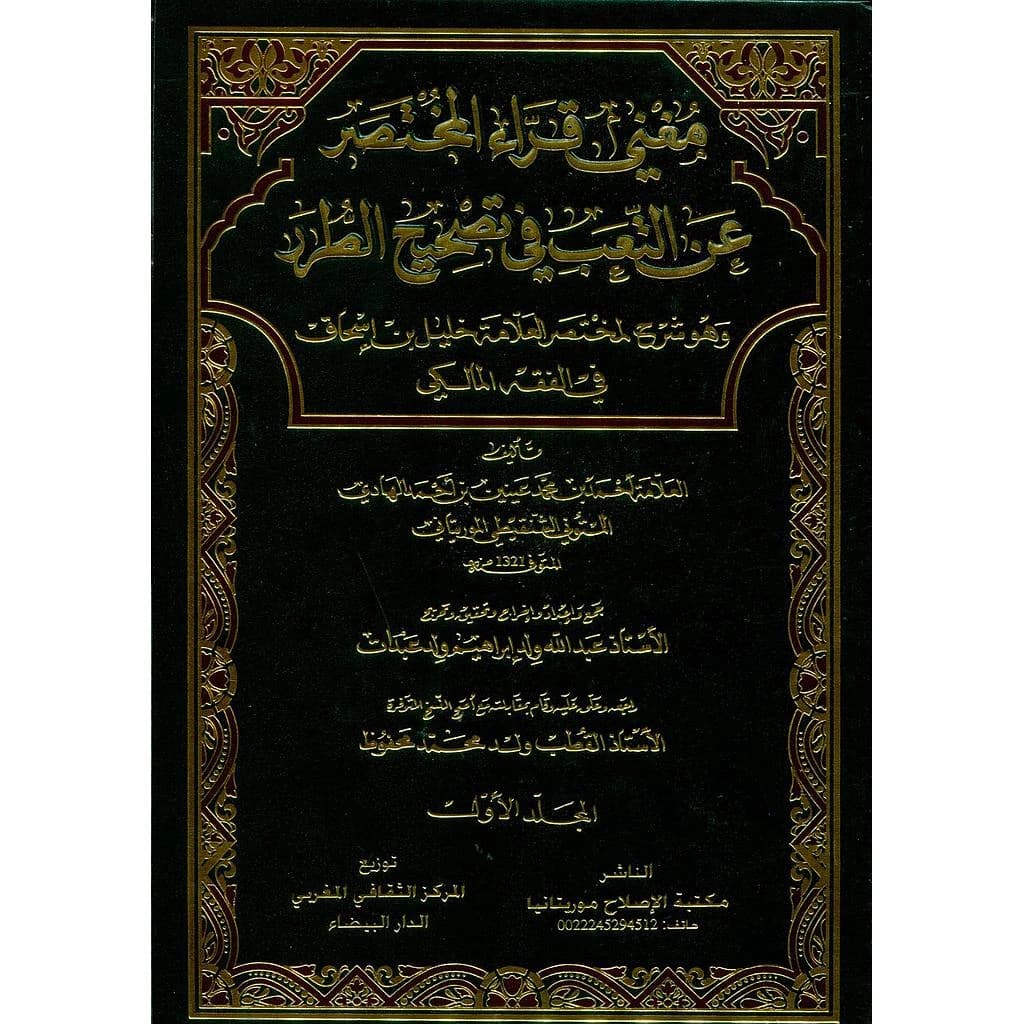 مُغني قرّاء المختصر
عن التعب في تصحيح الطرر
وهو شرح لمختصر العلامة خليل بن إسحاق
في الفقه المالكي
تأليف
العلامة أحمد بن محمد عينين بن أحمد الهادي
اللمتوني الشنقيطي الموريتاني
المتوفى 1321
جمع وإعداد وإخراج وتحقيق وتخريج
الأستاذ عبد الله ولد إبراهيم ولد عبدات
راجعه وعلق عليه وقام بمقابلته مع أصح النسخ المتوفرة
الأستاذ القطب ولد محمد محفوظ
المجلد الأول
الناشر
مكتبة الإصلاح موريتانيا
هاتف: 0022245294512
توزيع
المركز الثقافي المغربي
الدار البيضاء